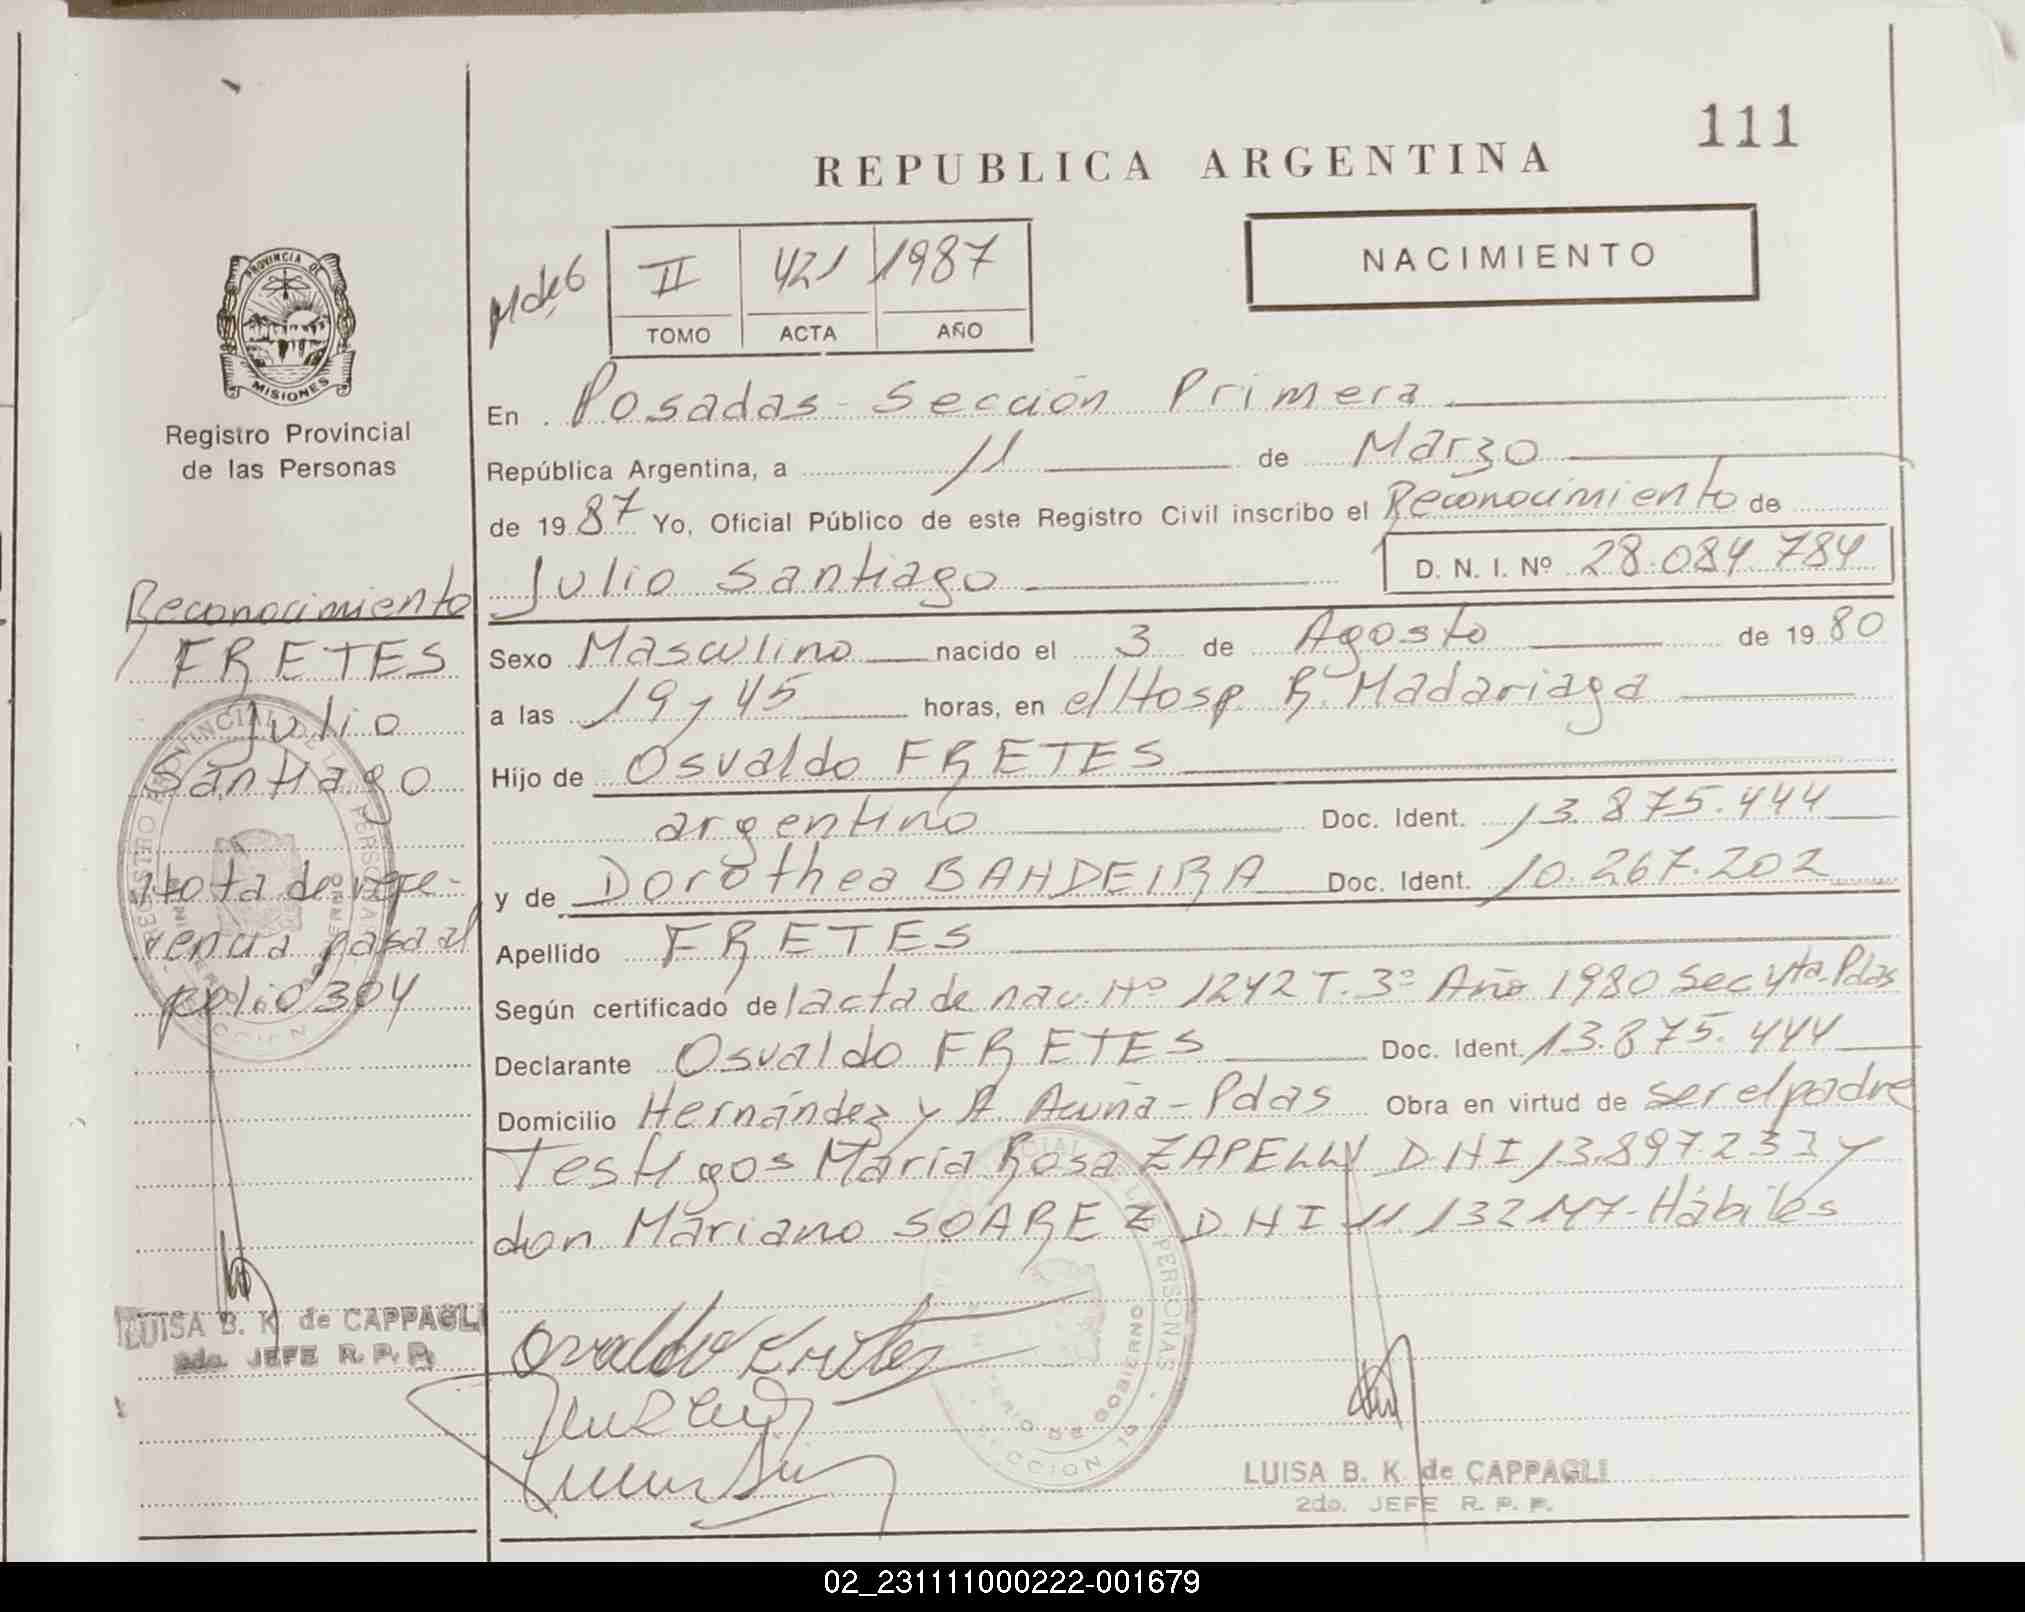 111
REPUBLICA ARGENTINA
NACIMIENTO
II 421 1987
TOMO ACTA AÑO
PROVINCIA DE
MISIONES
Registro Provincial
de las Personas
Reconocimiento
FRETES
Julio
Santiago
Nota de refe-
rencia pasa al
folio 304
LUISA B. K. de CAPPAGLI
2do. JEFE R. P. P.
En Posadas - Sección Primera
República Argentina, a 11 de Marzo
de 1987 Yo, Oficial Público de este Registro Civil inscribo el Reconocimiento de
Julio Santiago D. N. I. Nº 28.084.784
Sexo Masculino nacido el 3 de Agosto de 1980
a las 19 y 45 horas, en el Hosp. R. Madariaga
Hijo de Osvaldo FRETES
argentino Doc. Ident. 13.875.444
y de Dorothea BANDEIRA Doc. Ident. 10.267.202
Apellido FRETES
Según certificado del acta de nac. Nº 1242 T. 3º Año 1980 Sec 4ta. Pdas
Declarante Osvaldo FRETES Doc. Ident. 13.875.444
Domicilio Hernández y A. Acuña - Pdas Obra en virtud de ser el padre
Testigos María Rosa ZAPELLY DNI 13.897.233 y
don Mariano SOAREZ DNI 11.132.147 - Hábiles
Osvaldo Fretes
LUISA B. K. de CAPPAGLI
2do. JEFE R. P. P.
02_231111000222-001679